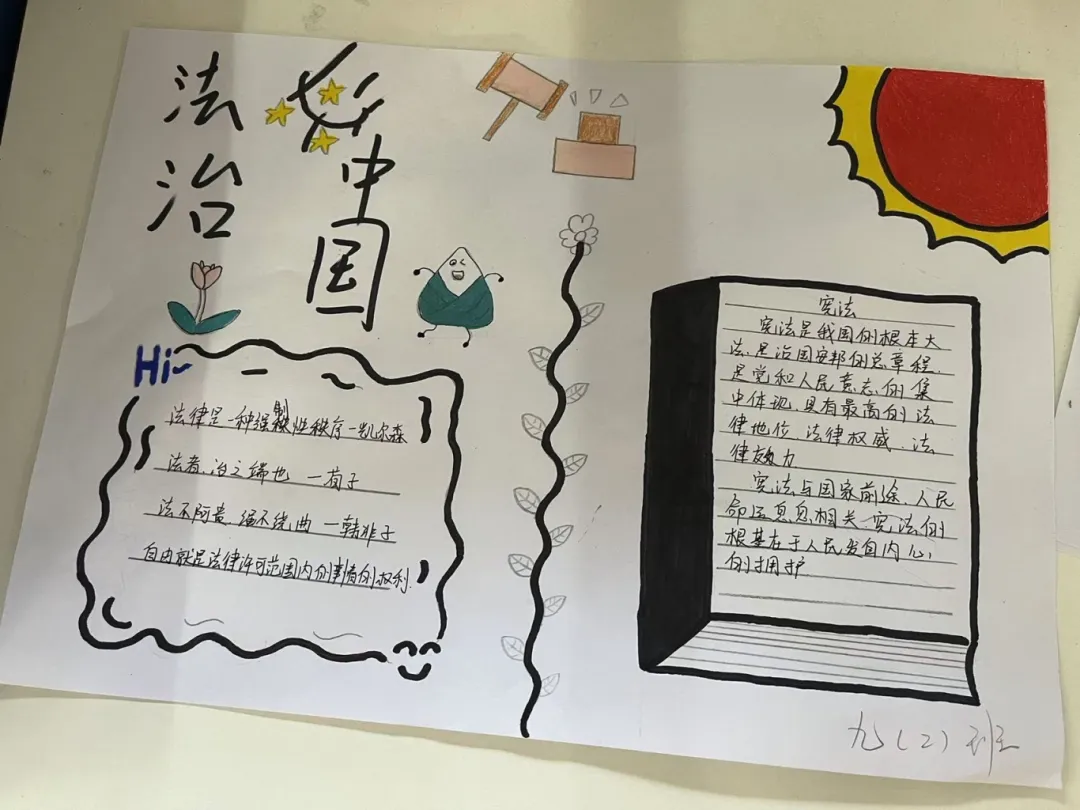 法治
中国
Hi~
法律是一种强制性秩序一凯尔森
法者、治之端也 一荀子
法不阿贵、绳不绕曲 一韩非子
自由就是法律许可范围内的事情的权利.
宪法
宪法是我国的根本大
法.是治国安邦的总章程.
是党和人民意志的集
中体现.具有最高的法
律地位.法律权威.法
律效力
宪法与国家前途.人民
命运息息相关.宪法的
根基在于人民发自内心
的拥护
九(2)班